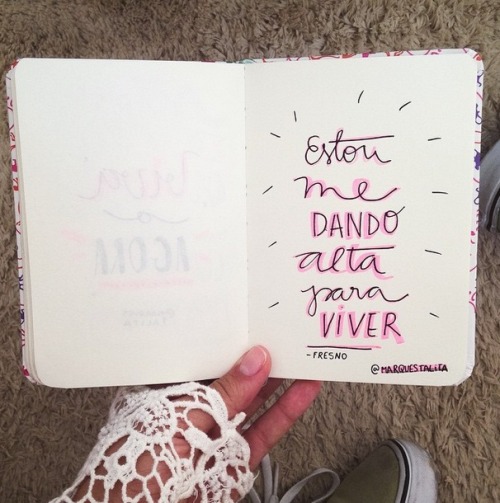 Estou
me
DANDO
alta
para
VIVER
- FRESNO
@MARQUESTALITA
Viva
o
AGORA